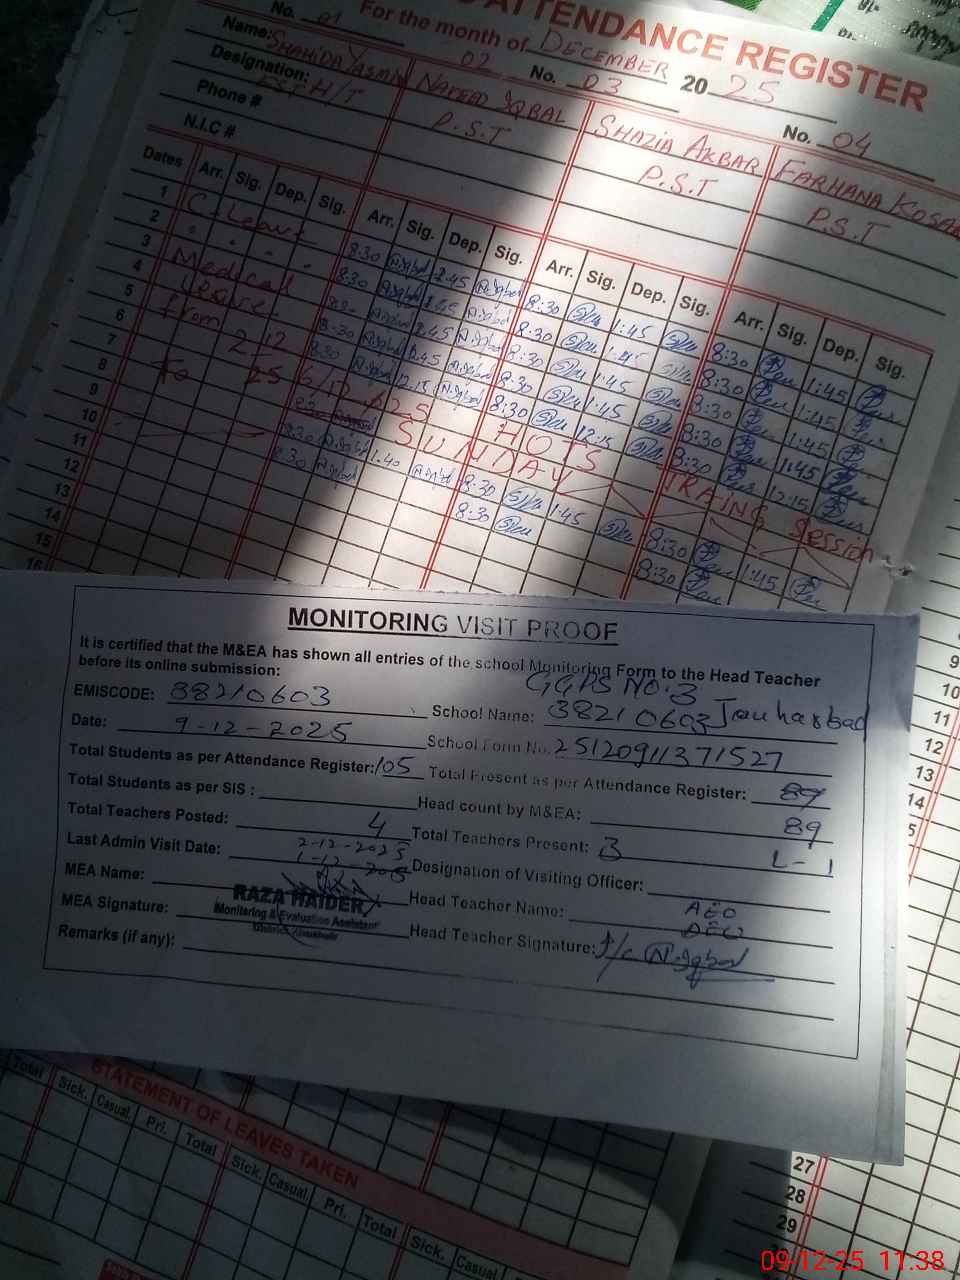 ATTENDANCE REGISTER
For the month of DECEMBER 2025
No. 01 02 No. 03 No. 04
Name: Shahida Yasmin Naveed Iqbal Shazia Akbar Farhana Kosar
Designation: EST H/T P.S.T P.S.T P.S.T
Phone #
N.I.C #
Dates Arr. Sig. Dep. Sig. Arr. Sig. Dep. Sig. Arr. Sig. Dep. Sig. Arr. Sig. Dep. Sig.
1 C. Leave 8:30 N.Iqbal 1:45 N.Iqbal 8:30 1:45 8:30 1:45
2 " " " " 8:30 N.Iqbal 1:45 N.Iqbal 8:30 1:45 8:30 1:45
3 Medical 8:30 N.Iqbal 1:45 N.Iqbal 8:30 1:45 8:30 1:45
4 Leave 8:30 N.Iqbal 1:45 N.Iqbal 8:30 1:45 8:30 1:45
5 from 2-12 8:30 N.Iqbal 12:15 N.Iqbal 8:30 12:15 8:30 12:15
6 to 25 6/12/25 HOTS TRAING Session
7 SUNDAY
8 8:30 N.Iqbal 1:40 N.Iqbal 8:30 1:45 8:30 1:45
9 8:30 N.Iqbal 8:30 8:30
10
11
12
13
14
15
16
MONITORING VISIT PROOF
It is certified that the M&EA has shown all entries of the school Monitoring Form to the Head Teacher
before its online submission:
EMISCODE: 38210603 School Name: GGPS NO.3 38210603 Jauharabad
Date: 9-12-2025 School Form No. 25120911371527
Total Students as per Attendance Register: 105 Total Present as per Attendance Register: 89
Total Students as per SIS : Head count by M&EA: 89
Total Teachers Posted: 4 Total Teachers Present: 3 L-1
Last Admin Visit Date: 2-12-2025 1-12-2025 Designation of Visiting Officer: AEO
MEA Name: RAZA HAIDER Head Teacher Name: DEO
Monitoring & Evaluation Assistant
MEA Signature: Head Teacher Signature: I/c N.Iqbal
Remarks (if any):
STATEMENT OF LEAVES TAKEN
Total Sick. Casual. Pri. Total Sick. Casual. Pri. Total Sick. Casual
9
10
11
12
13
14
27
28
29
09-12-25 11:38